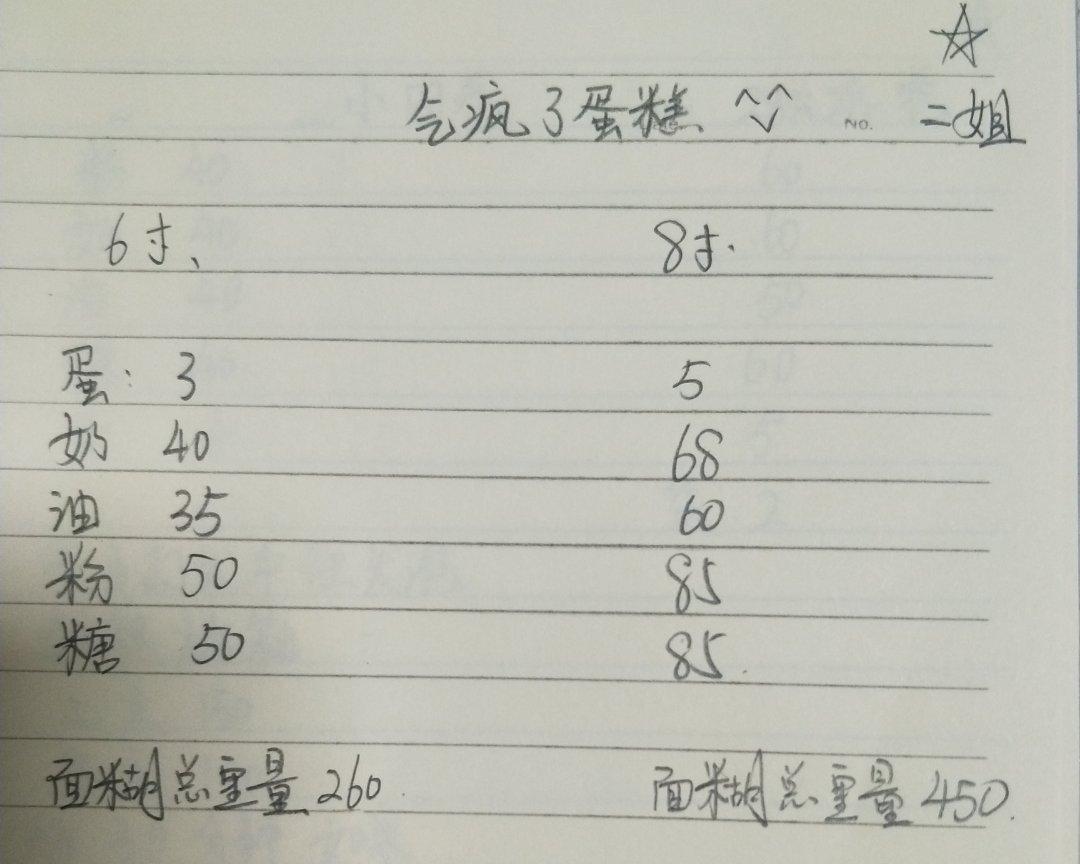 气疯了蛋糕 NO. 二姐
6寸、 8寸.
蛋: 3 5
奶 40 68
油 35 60
粉 50 85
糖 50 85.
面糊总重量 260. 面糊总重量 450.